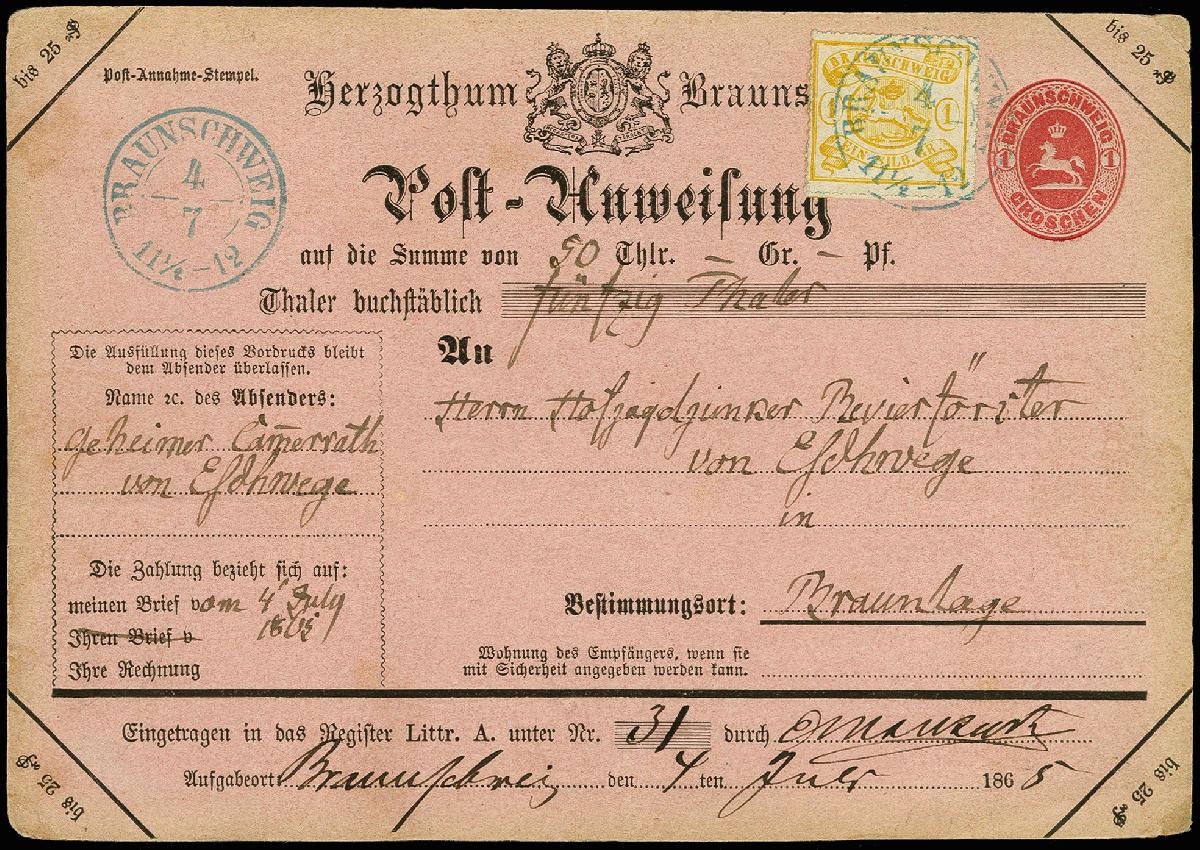 bis 25 ₰
bis 25 ₰
Post-Annahme-Stempel.
Herzogthum Brauns
BRAUNSCHWEIG
4
7
11½-12
BRAUNSCHWEIG
1 1
EIN SILB. GR
BRAUNSCHWEIG
4
7
11½-12
BRAUNSCHWEIG
1 1
GROSCHEN
Post-Anweisung
auf die Summe von 50 Thlr. – Gr. – Pf.
Thaler buchstäblich fünfzig Thaler
An
Herrn Hofjagdjunker Revierförster
von Eschwege
in
Bestimmungsort: Braunlage
Wohnung des Empfängers, wenn sie
mit Sicherheit angegeben werden kann.
Die Ausfüllung dieses Vordrucks bleibt
dem Absender überlassen.
Name ꝛc. des Absenders:
Geheimer Cam̅errath
von Eschwege
Die Zahlung bezieht sich auf:
meinen Brief vom 4' July
1865
Ihren Brief v
Ihre Rechnung
Eingetragen in das Register Littr. A. unter Nr. 31 durch
Aufgabeort: Braunschweig den 4 ten July 1865
bis 25 ₰
bis 25 ₰